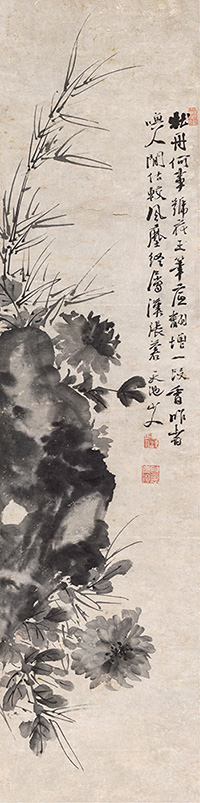 牡丹何事號花王筆底翻增一段香昨
人間 較風塵終屬漢張蒼 天池山人